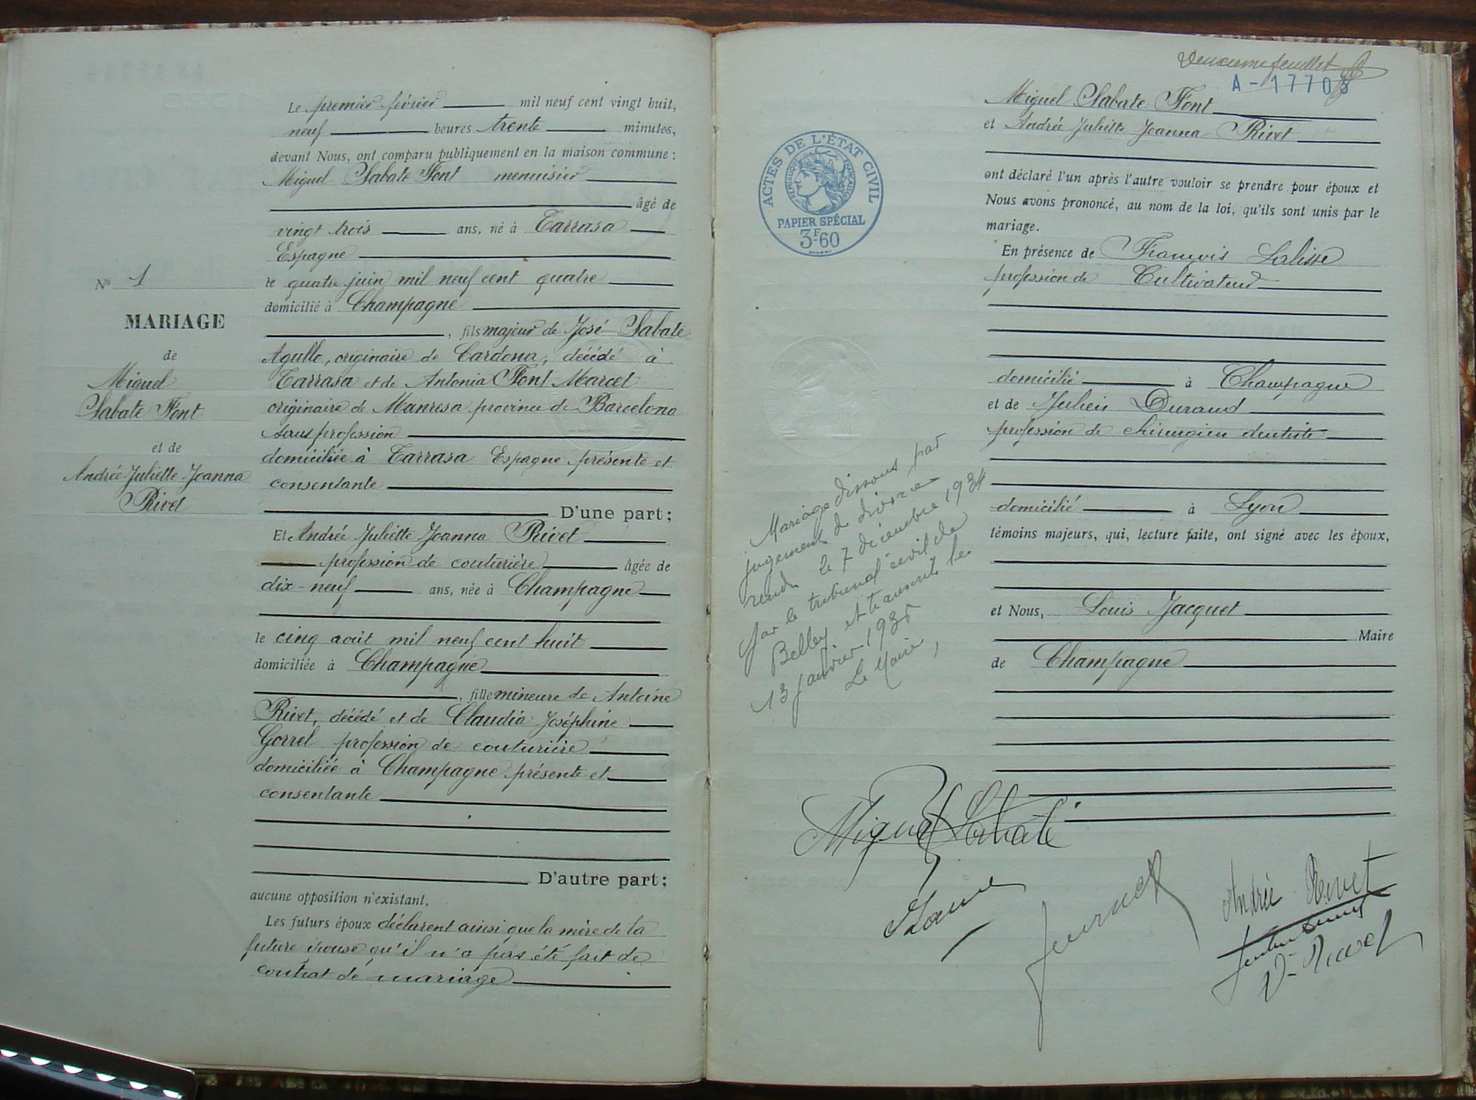 Le premier février mil neuf cent vingt huit,
neuf heures trente minutes,
devant Nous, ont comparu publiquement en la maison commune :
Miguel Sabate Font menuisier
âgé de
vingt trois ans, né à Tarrasa
Espagne
le quatre juin mil neuf cent quatre
domicilié à Champagne
, fils majeur de José Sabate
Agullo, originaire de Cardona, décédé à
Tarrasa et de Antonia Font Marcet
originaire de Manresa province de Barcelona
sans profession
domiciliée à Tarrasa Espagne, présente et
consentante
D'une part ;
Et Andrée Juliette Joanna Rivet
profession de couturière âgée de
dix-neuf ans, née à Champagne
le cinq août mil neuf cent huit
domiciliée à Champagne
, fille mineure de Antoine
Rivet, décédé et de Claudia Joséphine
Gorrel profession de couturière
domiciliée à Champagne présente et
consentante
D'autre part ;
aucune opposition n'existant.
Les futurs époux déclarent ainsi que la mère de la
future épouse qu'il n'a pas été fait de
contrat de mariage
N° 1
MARIAGE
de
Miguel
Sabate Font
et de
Andrée Juliette Joanna
Rivet
Deuxième feuillet
A-17703
Miguel Sabate Font
et Andrée Juliette Joanna Rivet
ont déclaré l'un après l'autre vouloir se prendre pour époux et
Nous avons prononcé, au nom de la loi, qu'ils sont unis par le
mariage.
En présence de François Lalisse
profession de Cultivateur
domicilié à Champagne
et de Julien Durand
profession de chirurgien dentiste
domicilié à Lyon
témoins majeurs, qui, lecture faite, ont signé avec les époux,
et Nous, Louis Jacquet
Maire
de Champagne
ACTES DE L'ÉTAT CIVIL
RÉPUBLIQUE FRANÇAISE
PAPIER SPÉCIAL
3F60
Mariage dissous par
jugement de divorce
rendu le 7 décembre 1934
par le tribunal civil de
Belley et transcrit le
13 janvier 1935
Le Maire,
Miguel Sabaté
Andrée Rivet